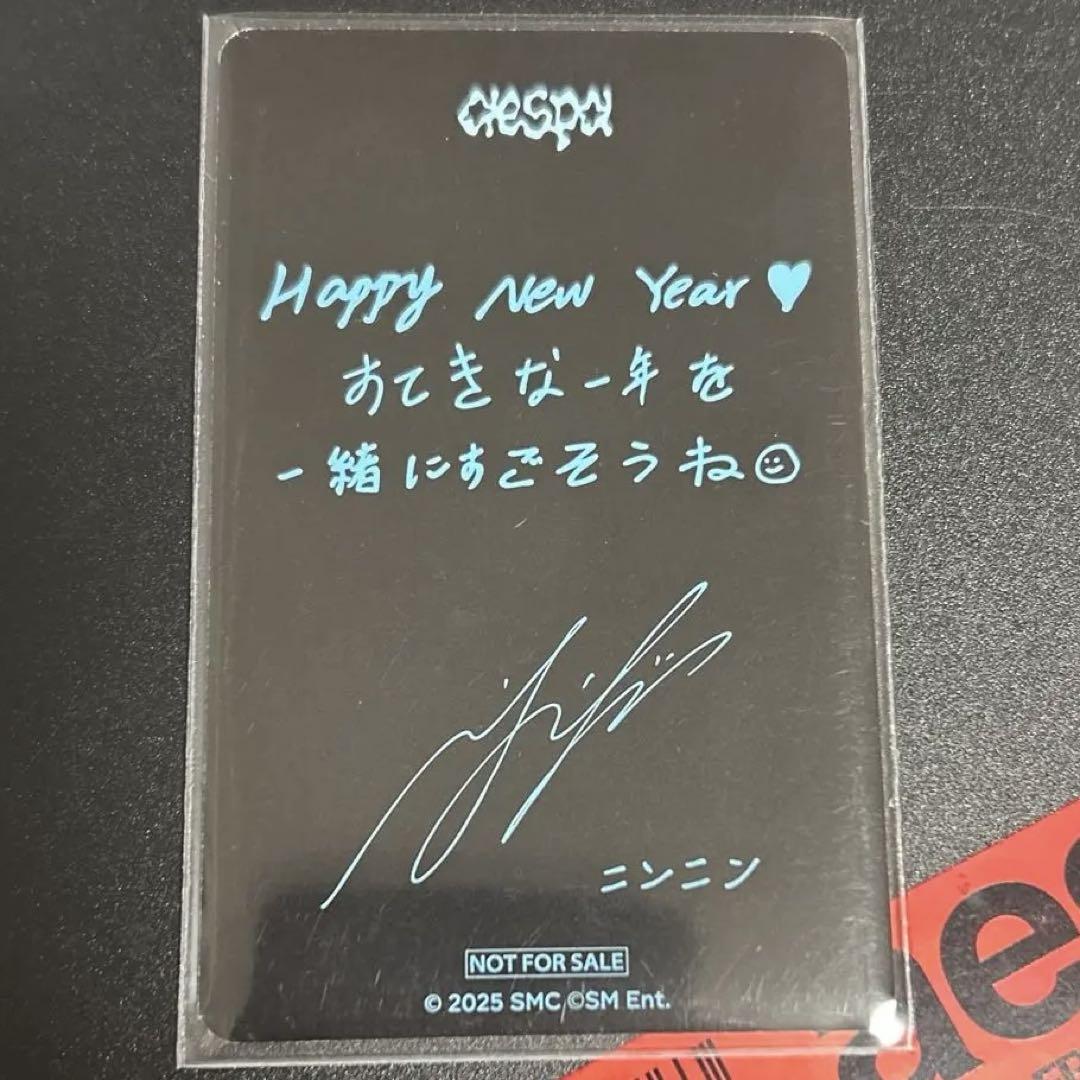 aespa
Happy New Year♥
すてきな一年を
一緒にすごそうね☺
ニンニン
NOT FOR SALE
© 2025 SMC ©SM Ent.